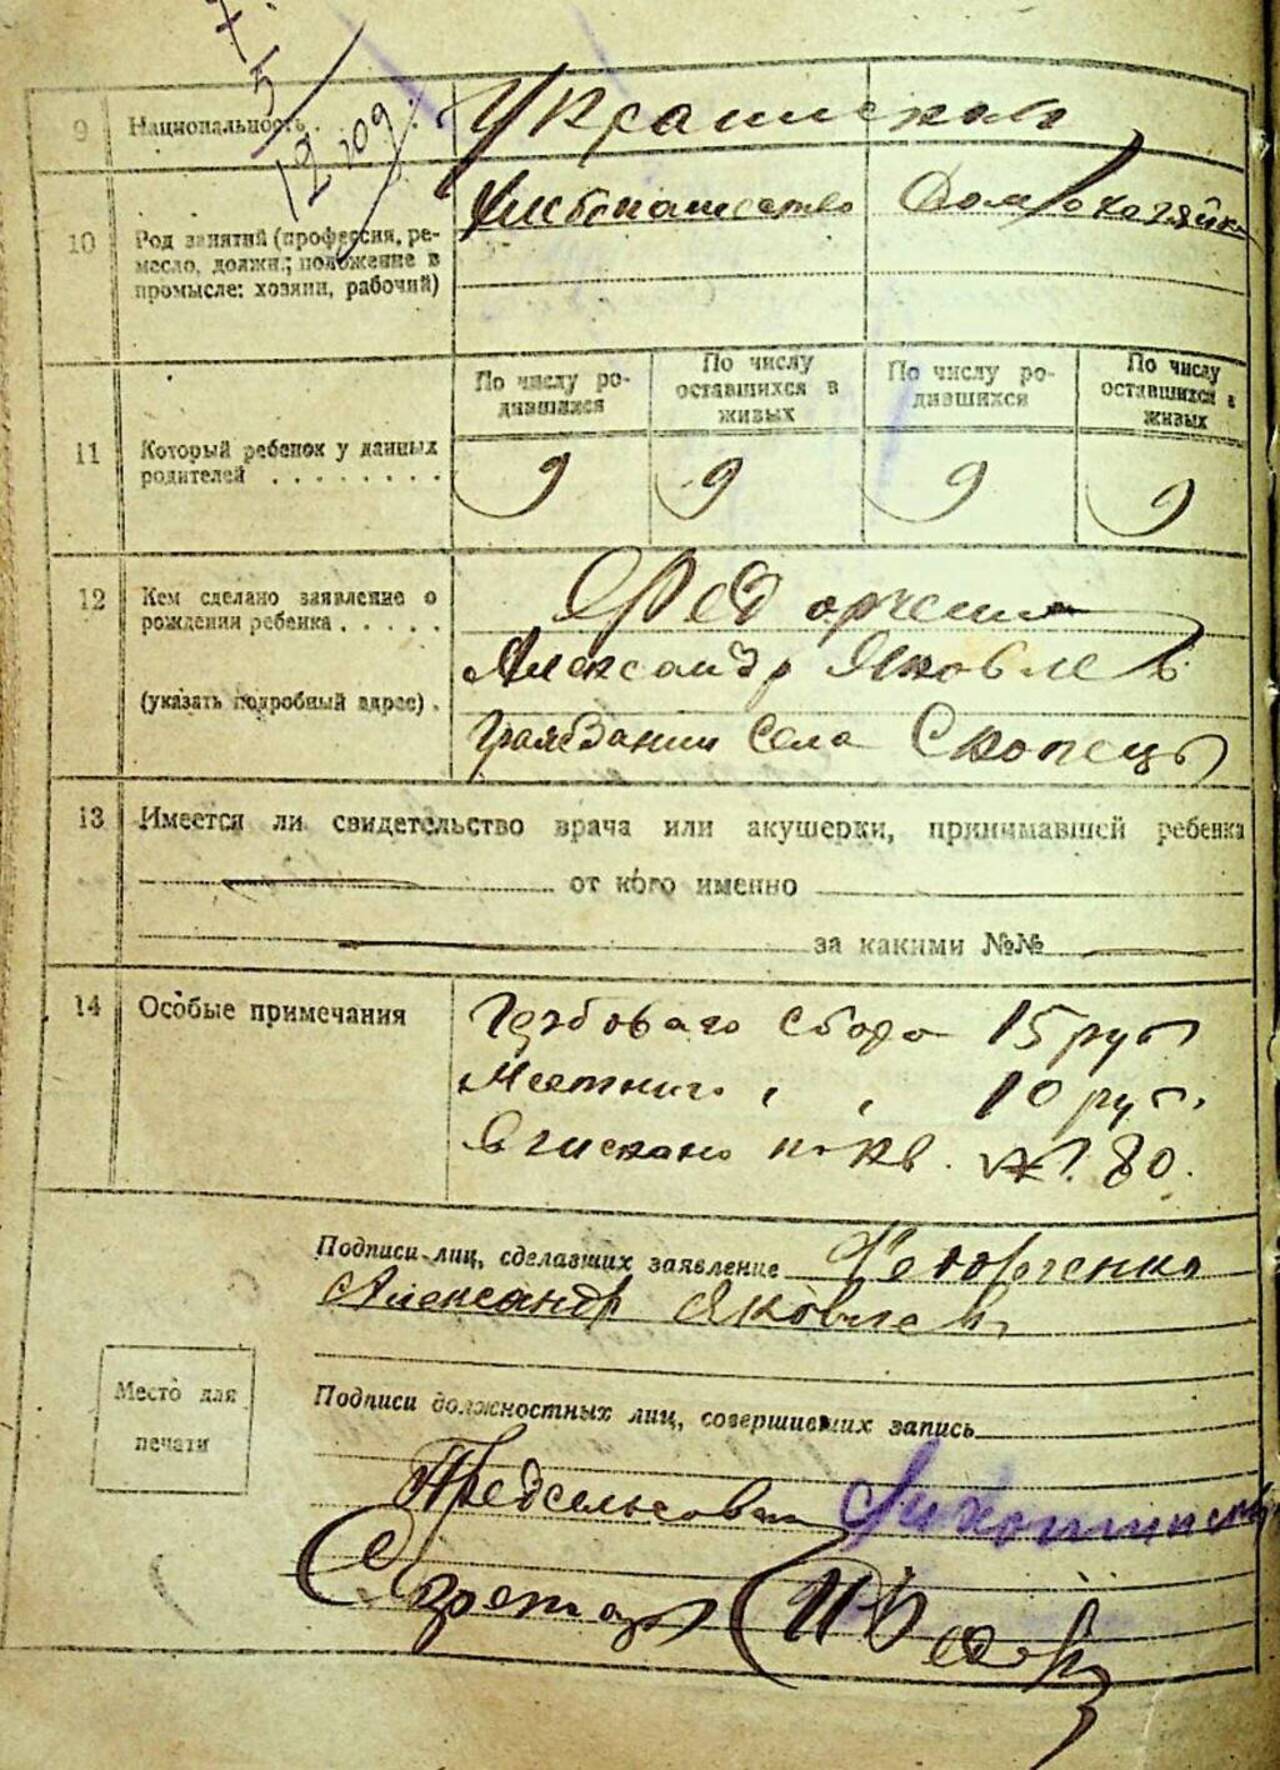 7.
5
12 109
9 Национальность. Украинская
10 Род занятий (профессия, ре-
месло, должн.; положение в
промысле: хозяин, рабочий)
Хлебопашество Домохозяйка
11 Который ребенок у данных
родителей . . . . . . . .
По числу ро-
дившихся
По числу
оставшихся в
живых
По числу ро-
дившихся
По числу
оставшихся в
живых
9 9 9 9
12 Кем сделано заявление о
рождения ребенка . . . . .
(указать подробный адрес) .
Федорченко
Александр Яковлев
Гражданин Села Скопець
13 Имеется ли свидетельство врача или акушерки, принимавшей ребенка
от кого именно
за какими №№
14 Особые примечания
Гербоваго сбора 15 руб
Местнаго " " 10 руб.
Взискано по кв. № 80.
Подписи лиц, сделавших заявление Федорченко
Александр Яковлев
Место для
печати
Подписи должностных лиц, совершивших запись
Предсельсовета
Секретарь